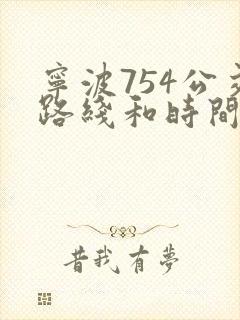 寧波754公交
路綫和時間
昔我有夢